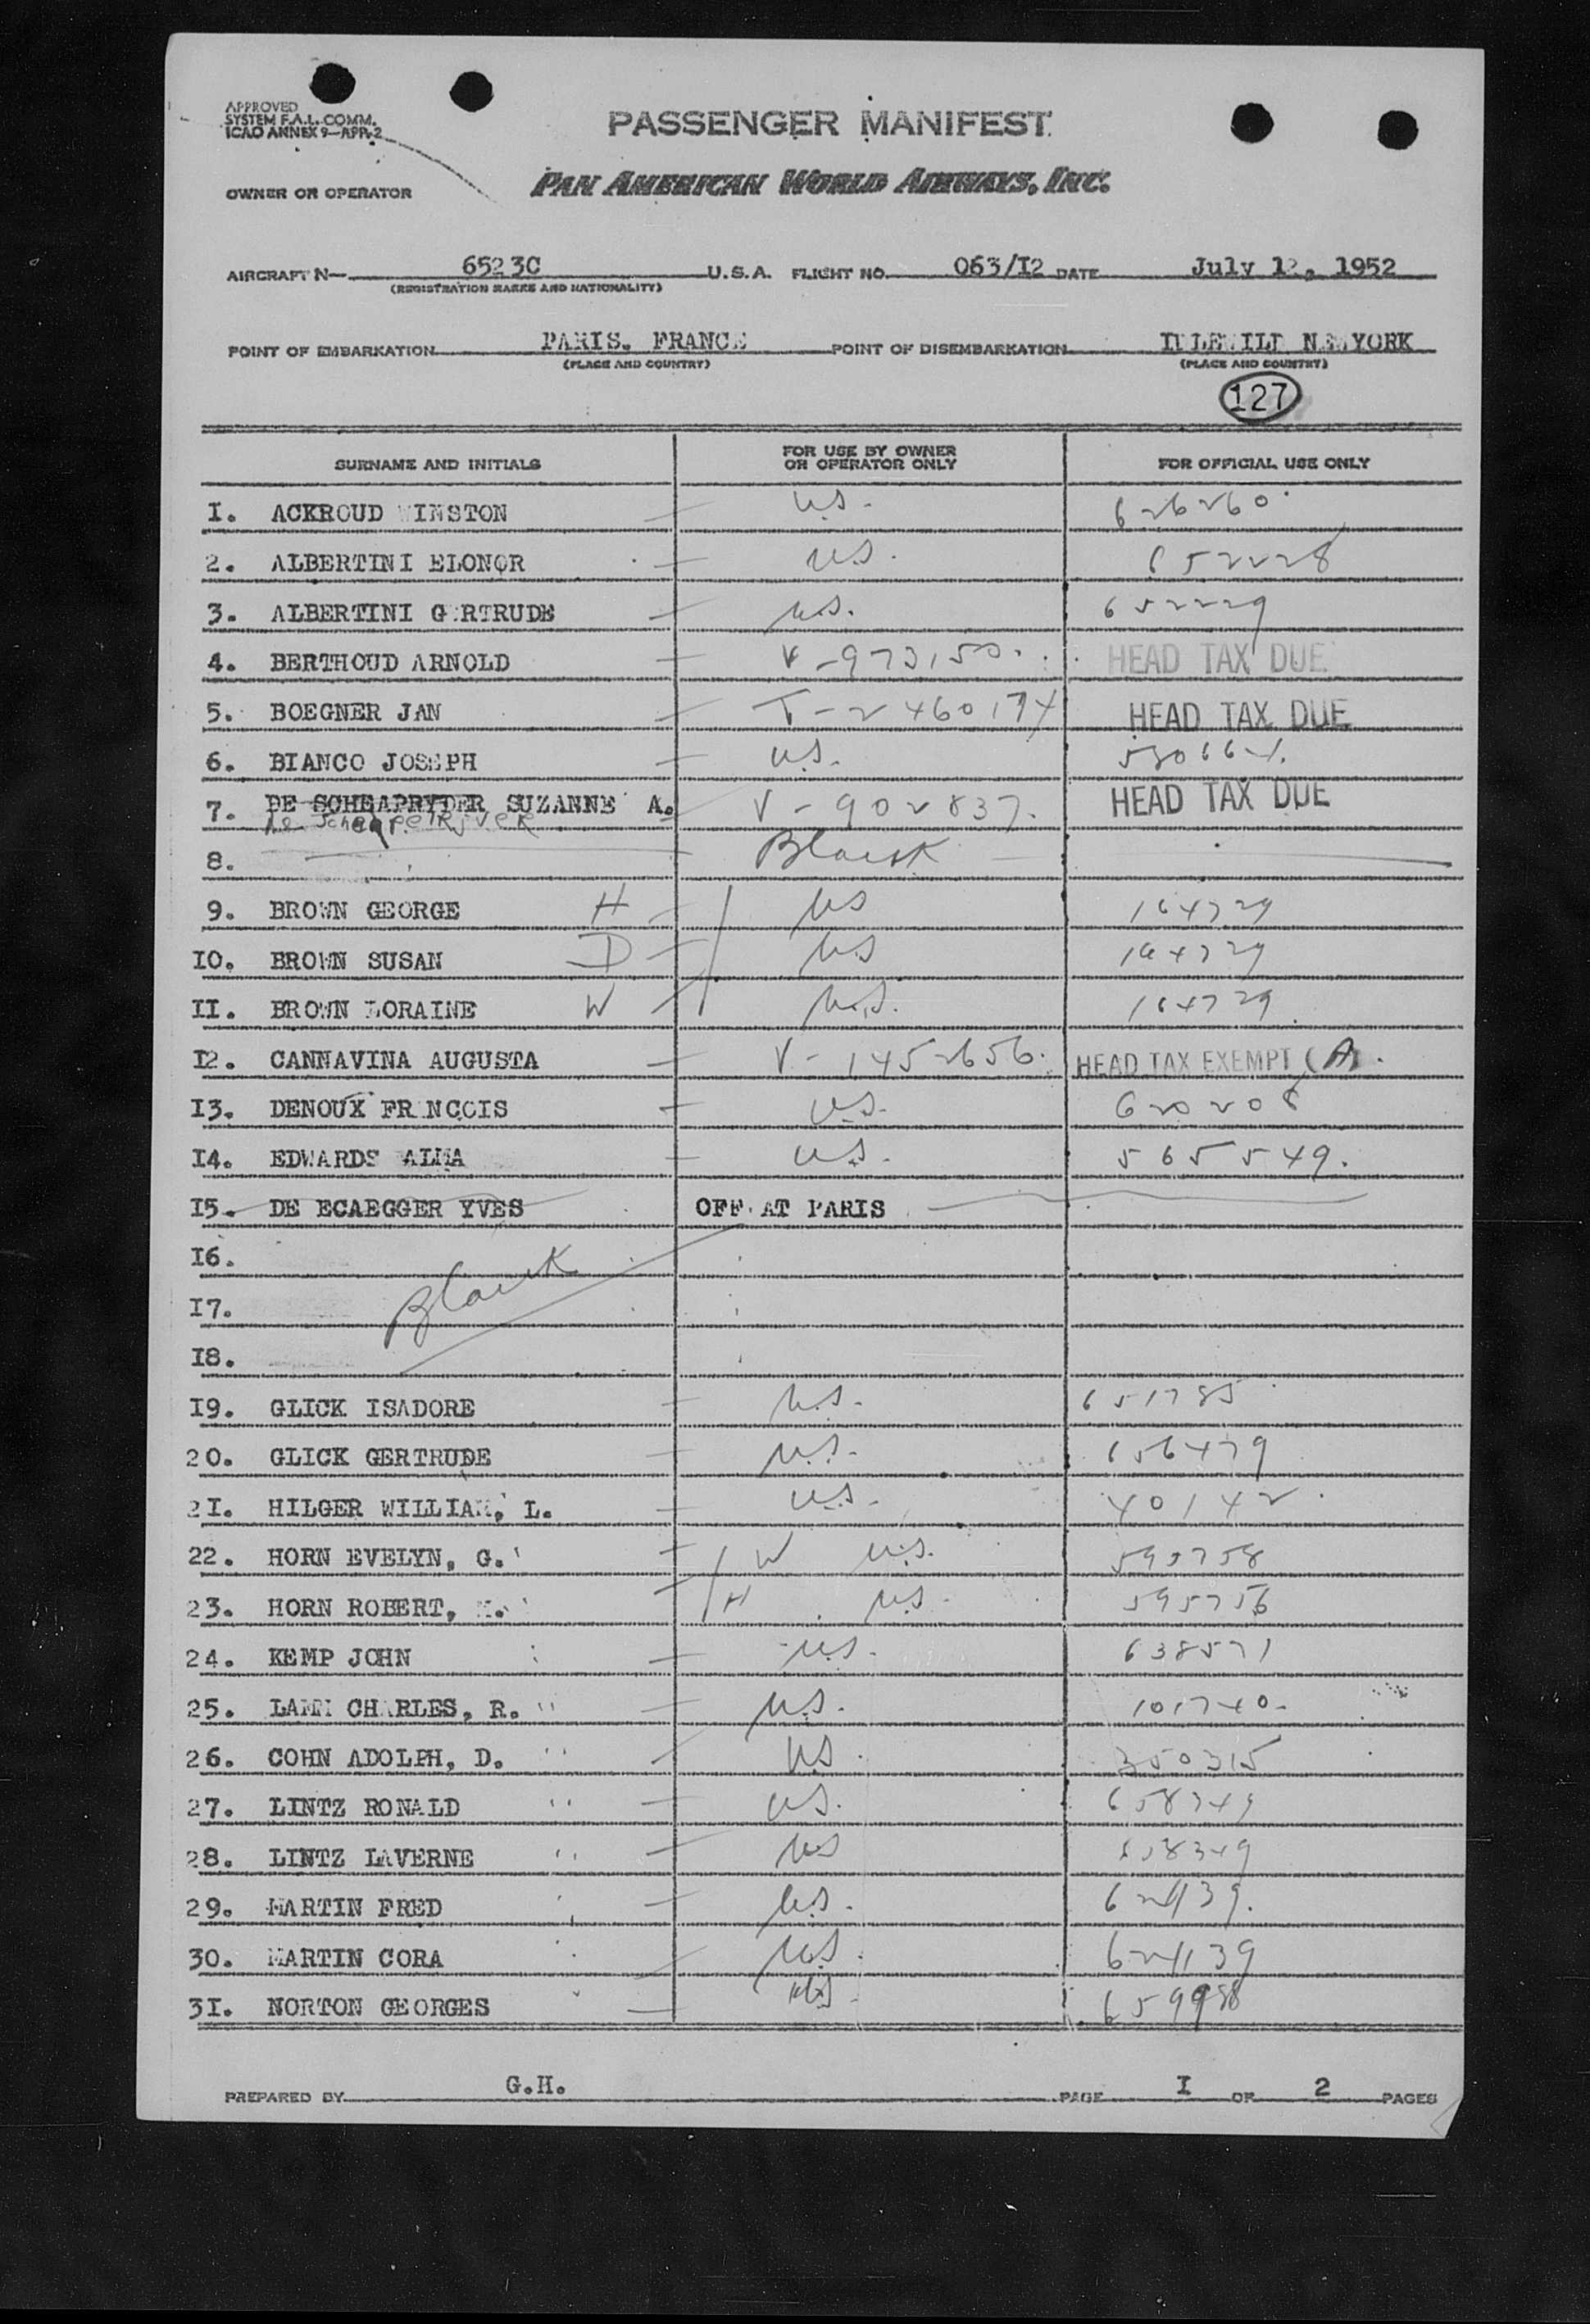 APPROVED
SYSTEM F.A.L. COMM.
ICAO ANNEX 9—APP. 2
PASSENGER MANIFEST
OWNER OR OPERATOR PAN AMERICAN WORLD AIRWAYS, INC.
AIRCRAFT N— 6523C U.S.A. FLIGHT NO. 063/I2 DATE July 12, 1952
(REGISTRATION MARKS AND NATIONALITY)
POINT OF EMBARKATION PARIS. FRANCE POINT OF DISEMBARKATION IDLEWILD NEWYORK
(PLACE AND COUNTRY) (PLACE AND COUNTRY)
127
SURNAME AND INITIALS FOR USE BY OWNER OR OPERATOR ONLY FOR OFFICIAL USE ONLY
I. ACKROUD WINSTON U.S. 626260
2. ALBERTINI ELONOR U.S. 652228
3. ALBERTINI GERTRUDE U.S. 652229
4. BERTHOUD ARNOLD V-973150. HEAD TAX DUE
5. BOEGNER JAN T-2460174 HEAD TAX DUE
6. BIANCO JOSEPH U.S. 530664.
7. DE SCHEAPRYDER SUZANNE A. V-902837. HEAD TAX DUE
De Schaapetrijver
8. Blank
9. BROWN GEORGE H US 164729
IO. BROWN SUSAN D US 164729
II. BROWN LORAINE W U.S. 164729
I2. CANNAVINA AUGUSTA V-1452656. HEAD TAX EXEMPT (A).
I3. DENOUX FRANCOIS U.S. 620208
I4. EDWARDS ALMA U.S. 565549.
I5. DE ECAEGGER YVES OFF AT PARIS
I6.
I7. Blank
I8.
I9. GLICK ISADORE U.S. 651785
20. GLICK GERTRUDE U.S. 656479
2I. HILGER WILLIAM, L. U.S. 40142.
22. HORN EVELYN, G. W U.S. 595758
23. HORN ROBERT, H U.S. 595756
24. KEMP JOHN U.S. 638571
25. CHARLES, R. U.S. 101740.
26. COHN ADOLPH, D. US. 350315
27. LINTZ RONALD U.S. 658349
28. LINTZ LAVERNE US 658349
29. MARTIN FRED U.S. 624139.
30. MARTIN CORA U.S. 624139
3I. NORTON GEORGES US.
PREPARED BY G.H. PAGE I OF 2 PAGES